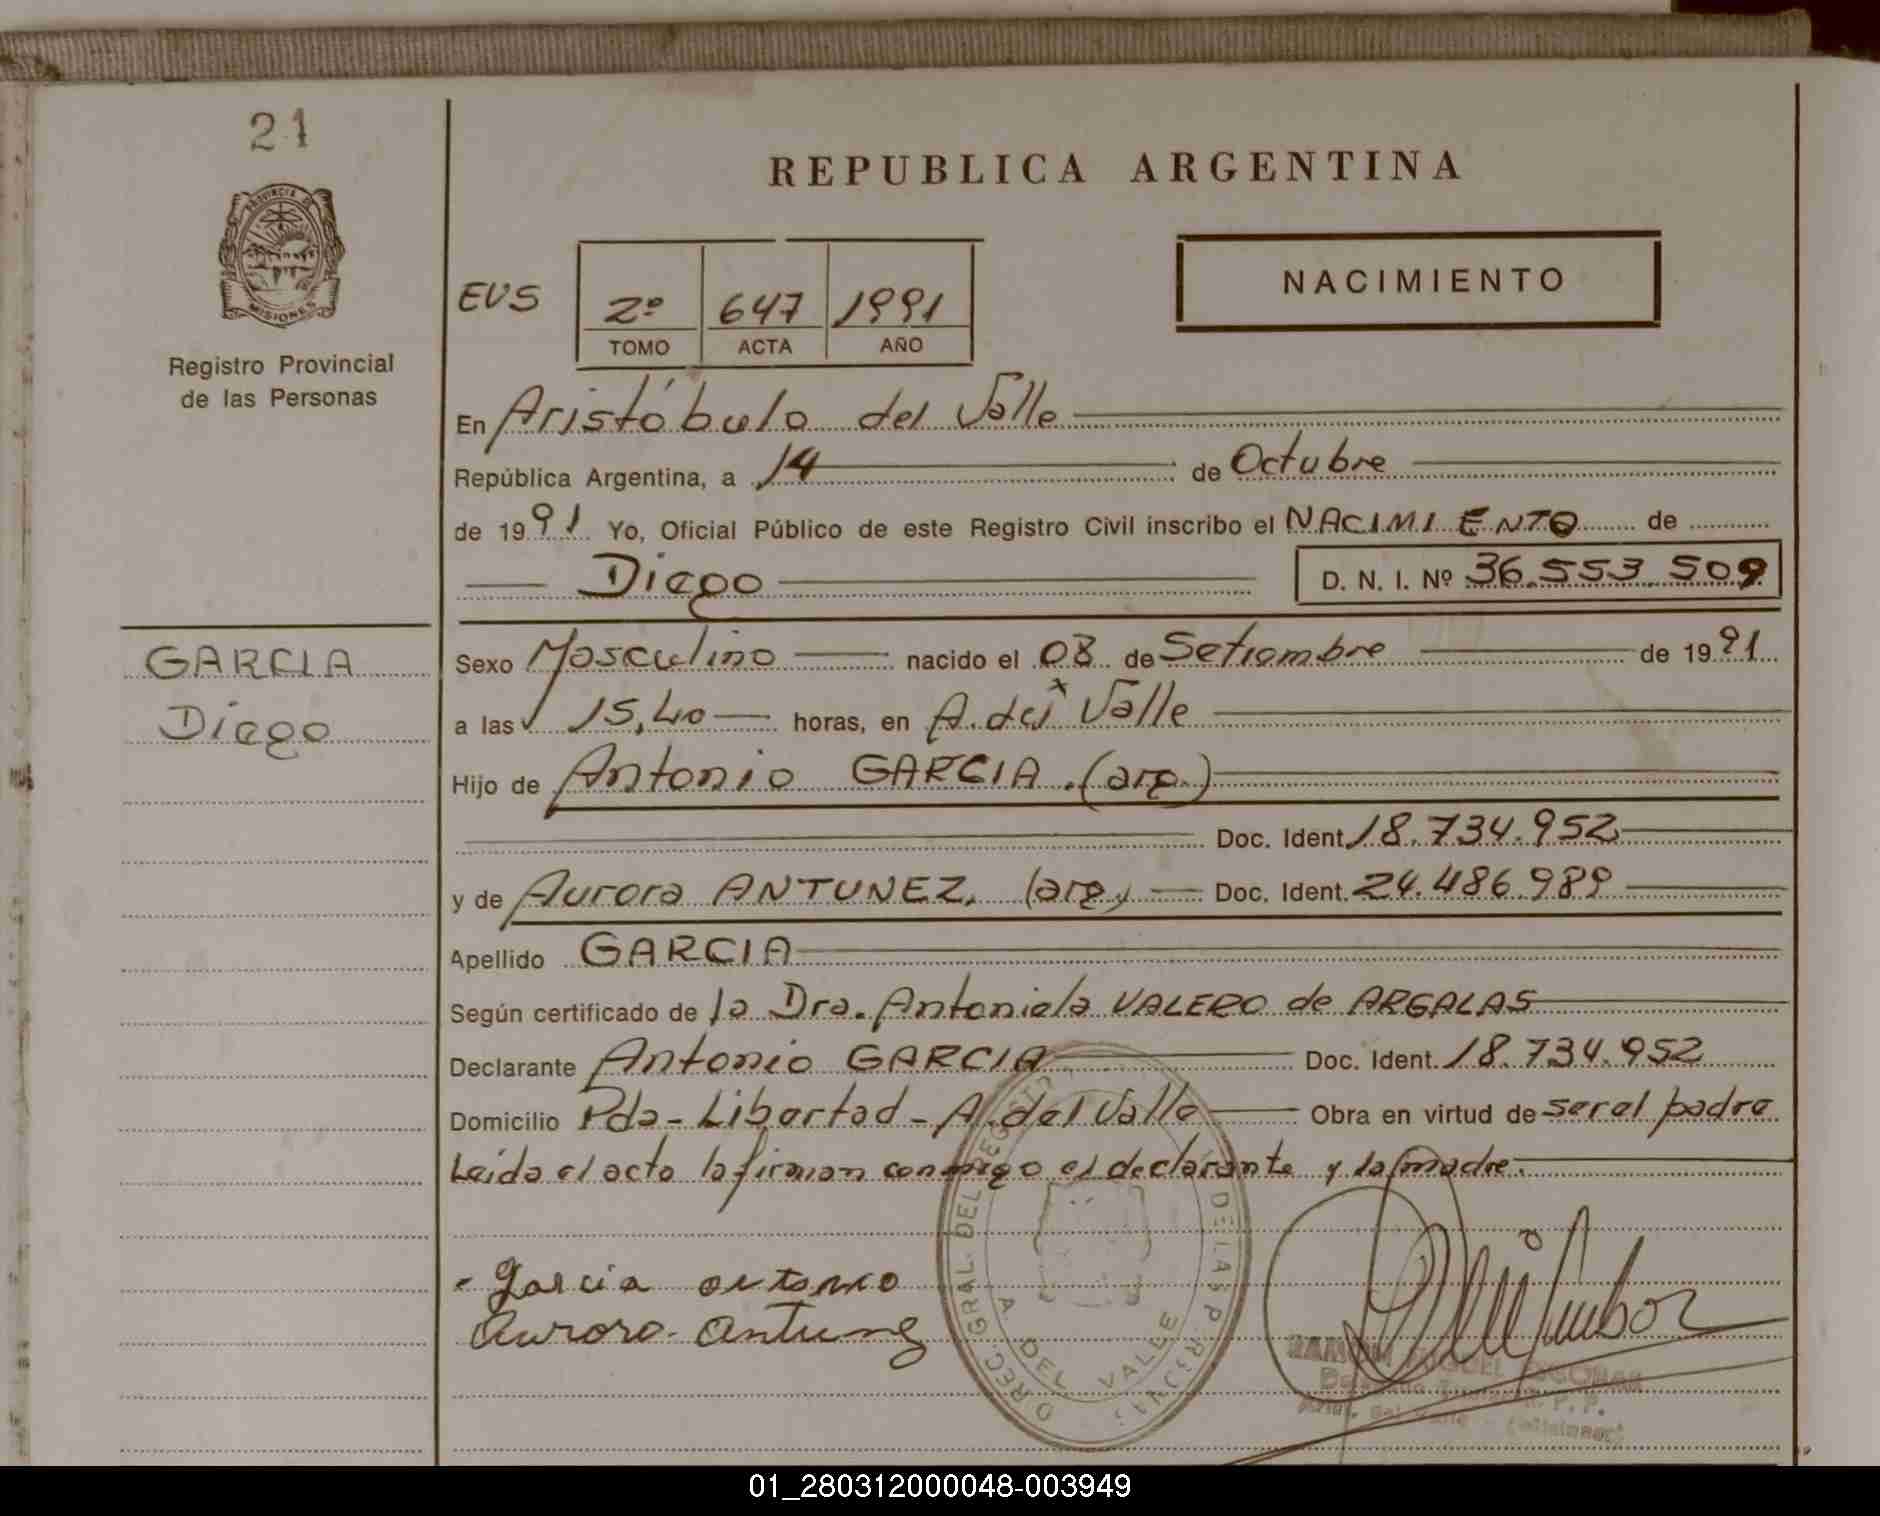 21
REPUBLICA ARGENTINA
PROVINCIA DE MISIONES
NACIMIENTO
EVS 2º 647 1991
TOMO ACTA AÑO
Registro Provincial
de las Personas
En Aristóbulo del Valle
República Argentina, a 14 de Octubre
de 1991 Yo, Oficial Público de este Registro Civil inscribo el NACIMIENTO de
Diego D. N. I. Nº 36.553.509
GARCIA
Diego
Sexo Masculino nacido el 08 de Setiembre de 1991
a las 15,40 horas, en A. del Valle
Hijo de Antonio GARCIA. (arg.)
Doc. Ident. 18.734.952
y de Aurora ANTUNEZ. (arg.) Doc. Ident. 24.486.989
Apellido GARCIA
Según certificado de la Dra. Antoniela VALERO de ARGALAS
Declarante Antonio GARCIA Doc. Ident. 18.734.952
Domicilio Pda - Libertad - A. del Valle Obra en virtud de ser el padre
Leida el acta la firman conmigo el declarante y la madre.
Garcia antonio
Aurora Antunez
A DEL VALLE
01_280312000048-003949